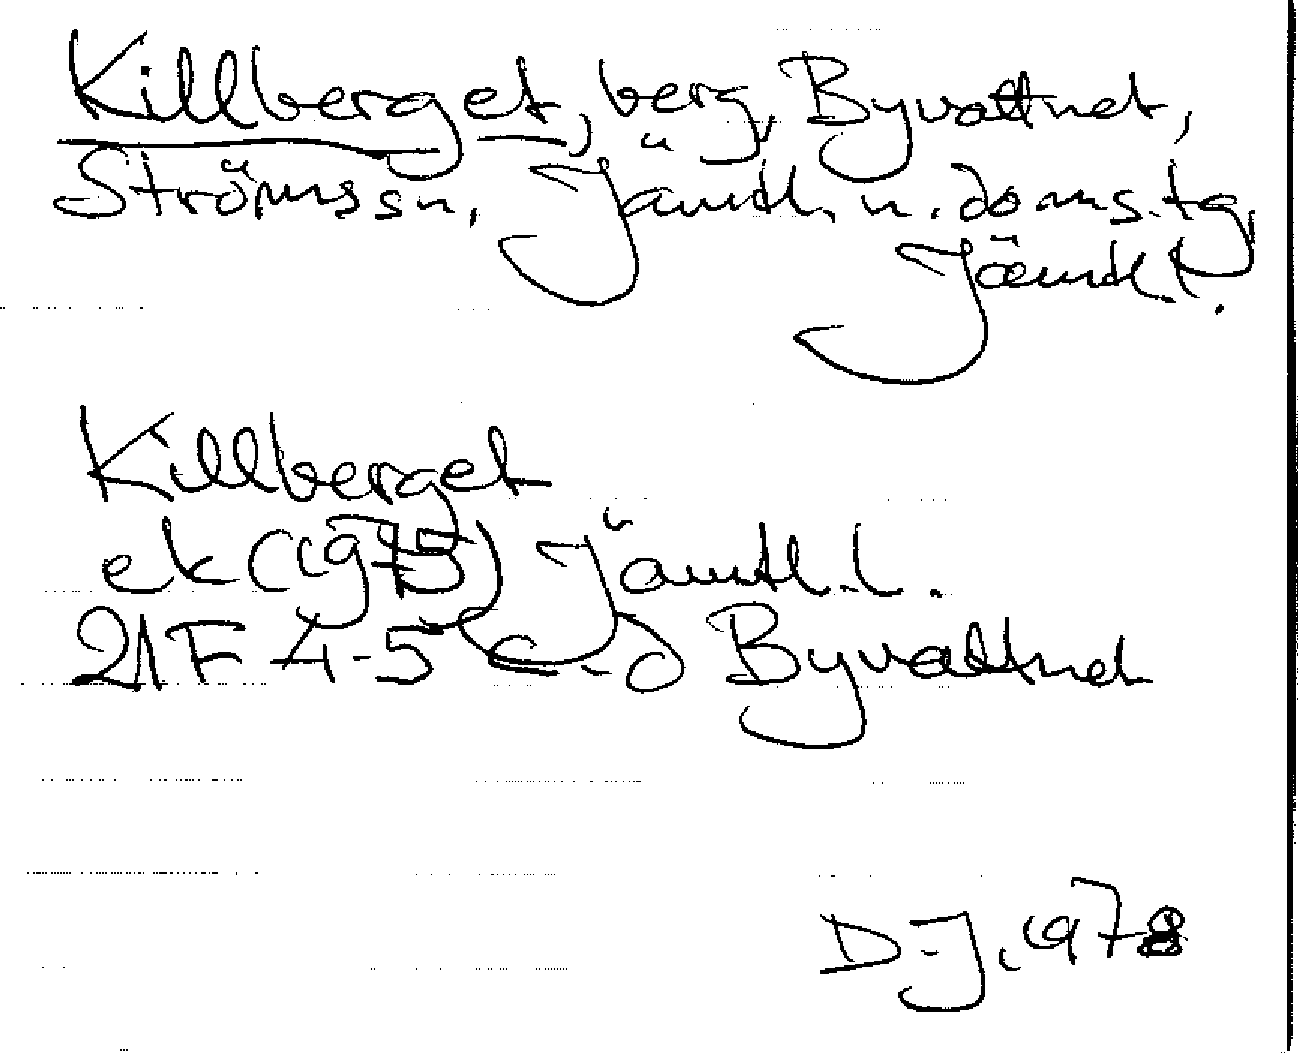 Killberget, berg, Byvattnet,
Ströms sn, Jämtl. n. doms.tg,
Jämtl.
Killberget
ek (1975) Jämtl.l.
21F 4-5 c-d Byvattnet
D-J, 1978